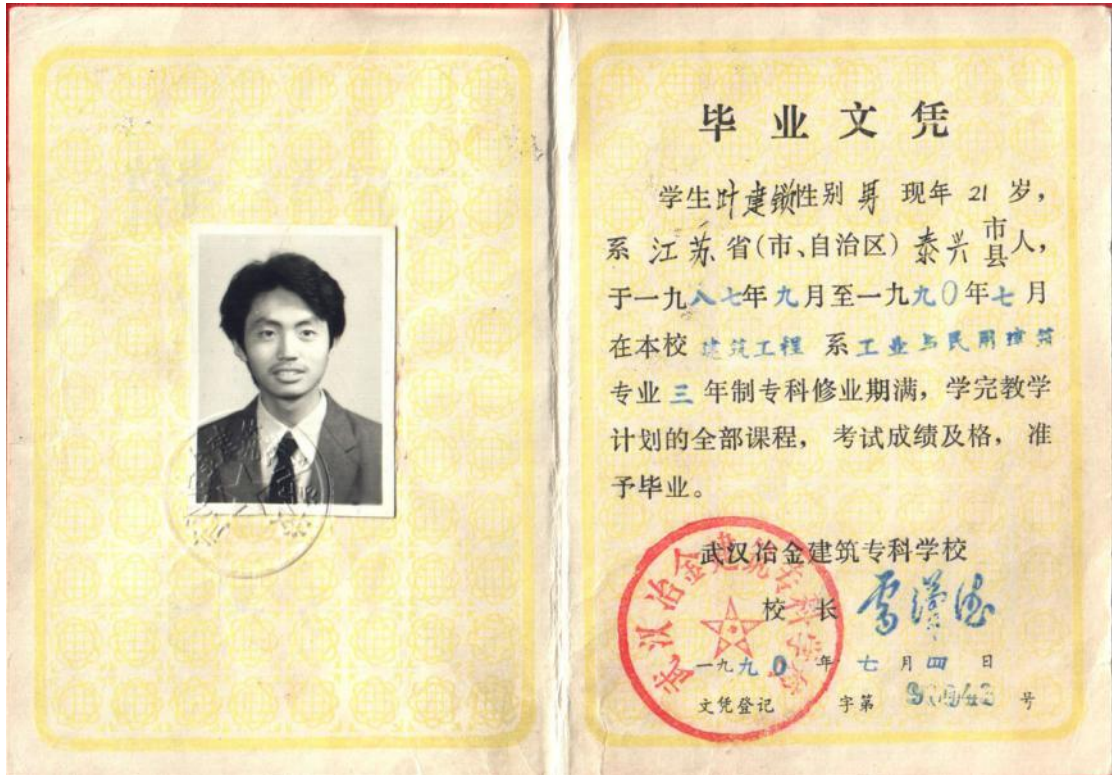 毕业文凭
学生叶建锁性别 男 现年 21 岁，
系 江苏 省(市、自治区) 泰兴 市县人，
于一九八七年九月至一九九0年七月
在本校 建筑工程 系工业与民用建筑
专业 三 年制专科修业期满，学完教学
计划的全部课程，考试成绩及格，准
予毕业。
武汉冶金建筑专科学校
校 长
武汉冶金建筑专科学校
一九九0 年 七 月 四 日
文凭登记 字第 号